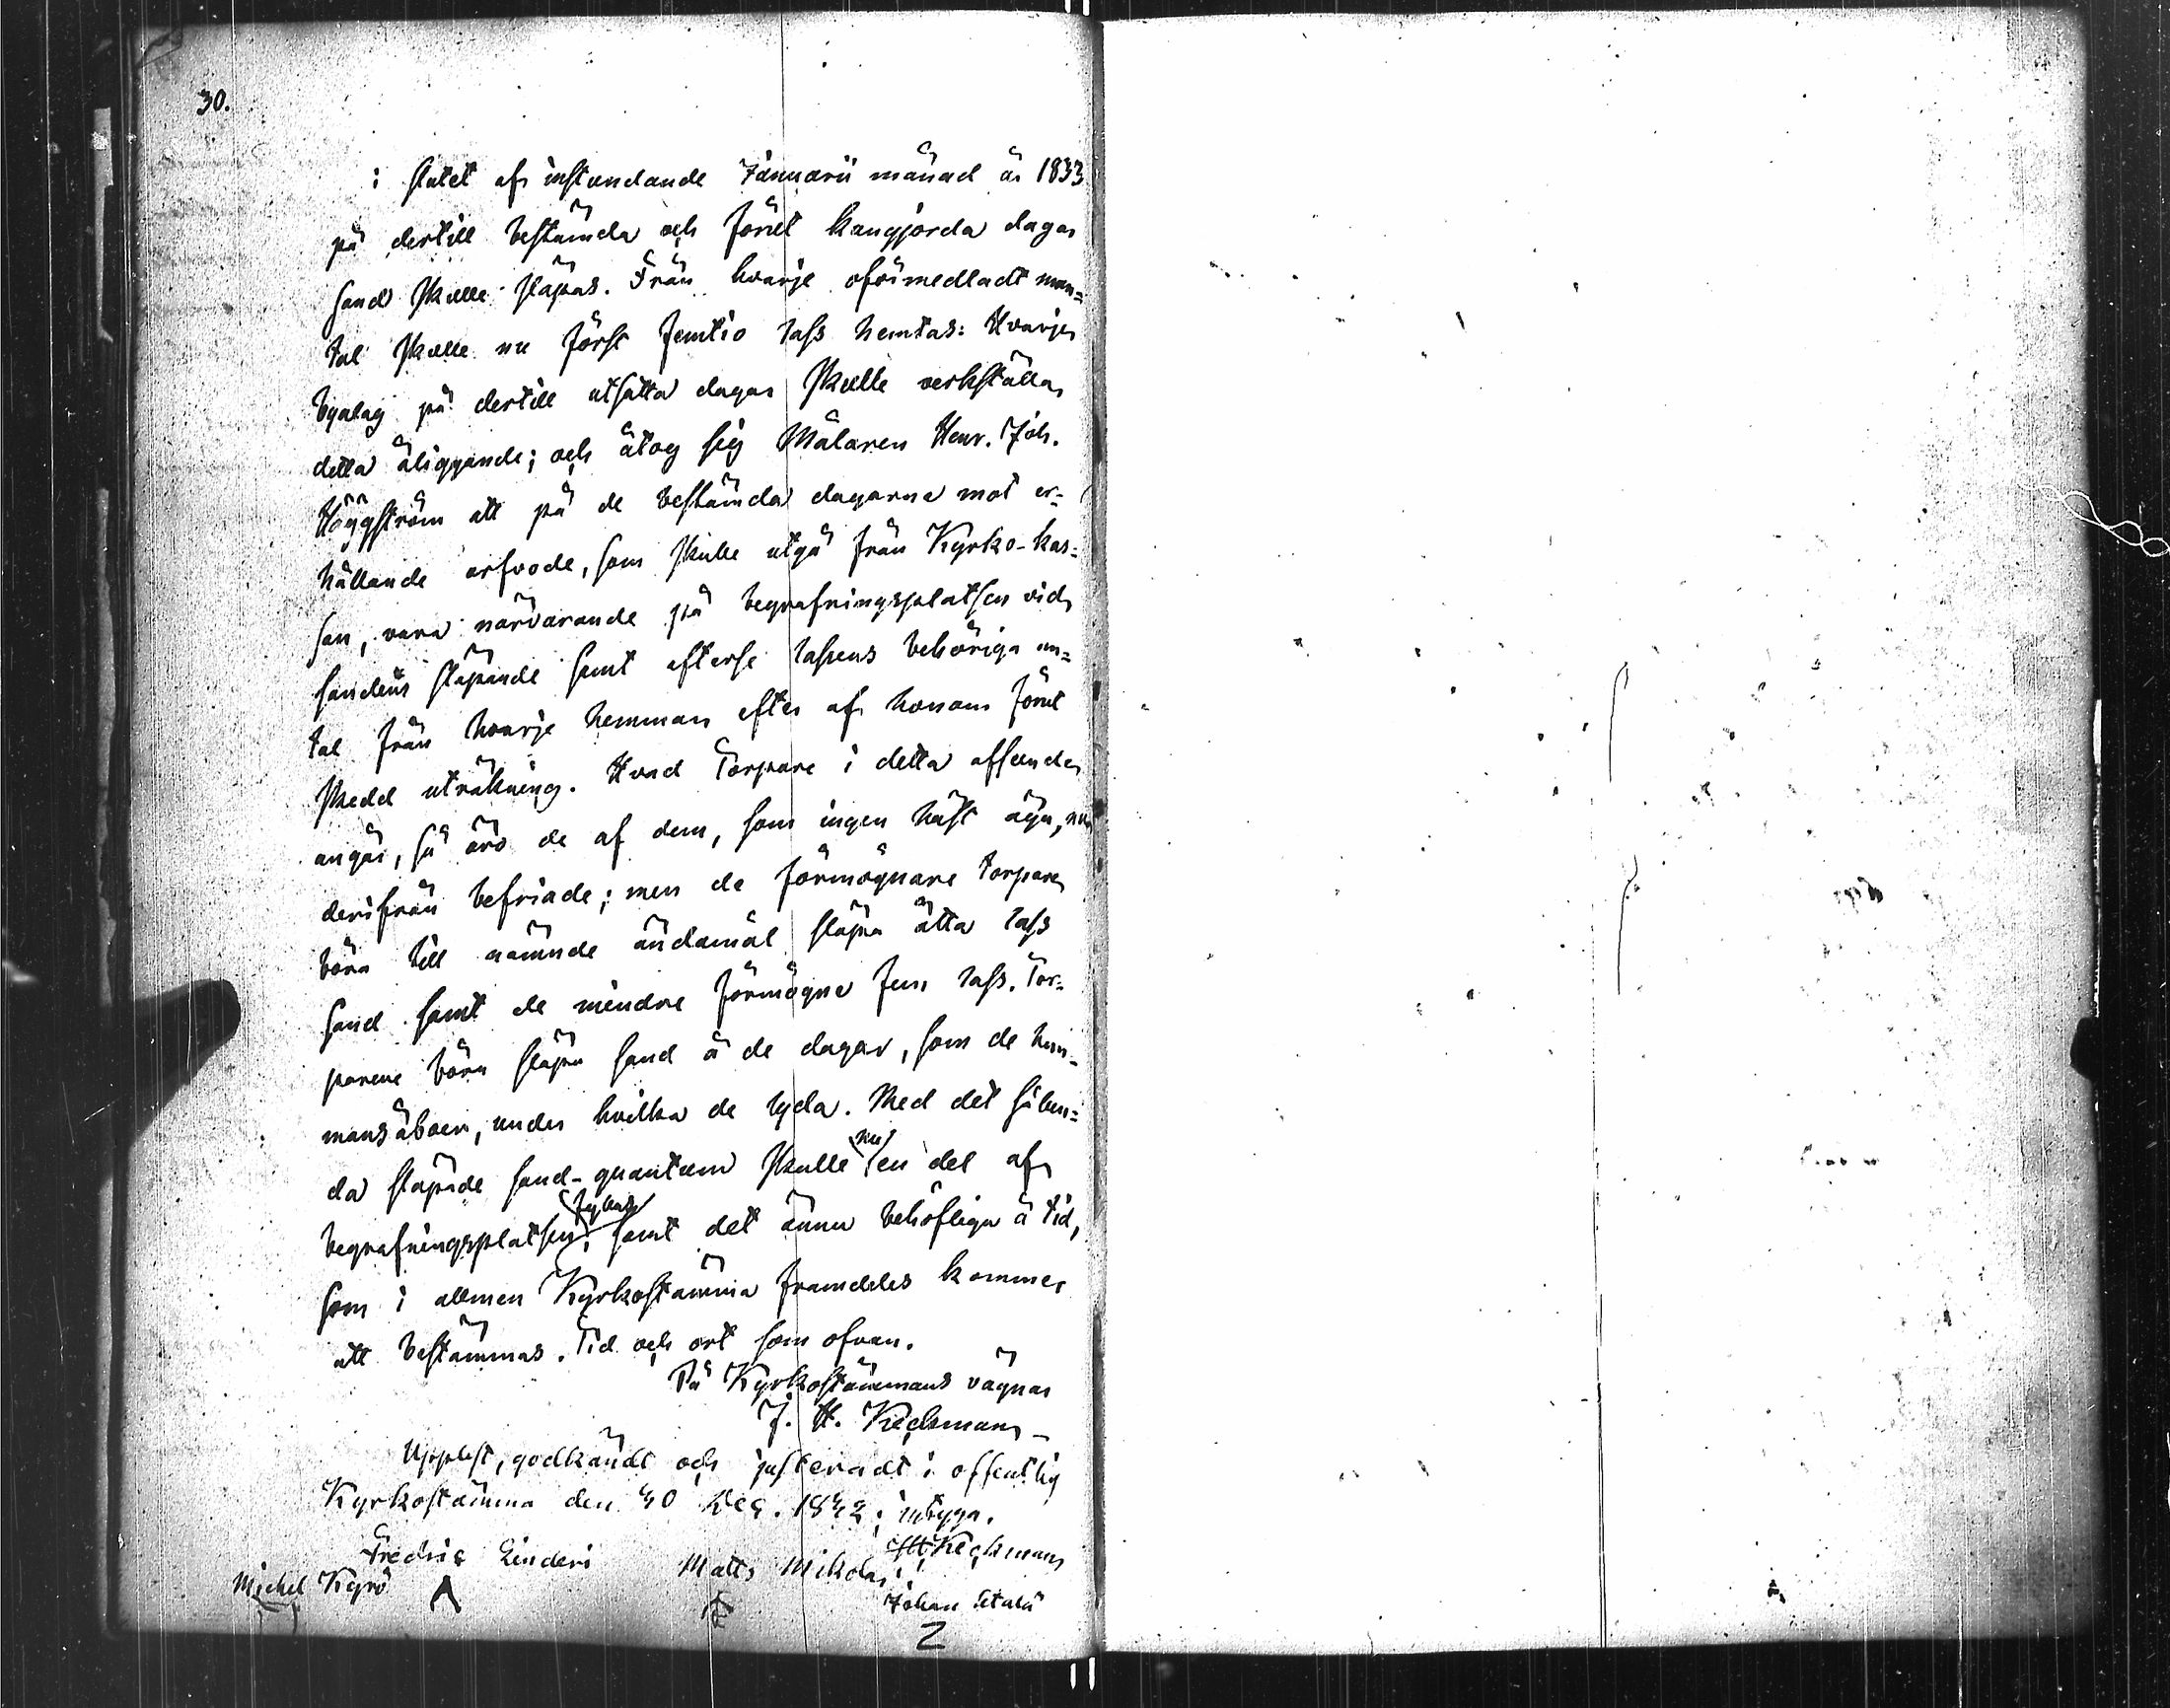 30.
i slutet af instundande Januarii månad år 1833
på dertill bestämda och förut kungjorda dagar
sand skulle släpas. Från hvarje oförmedladt man=
tal skulle nu först femtio lass hemtas: Hvarje
byalag på dertill utsatta dagar skulle verkställa
detta åliggande; och åtog sig Målaren Henr. Joh.
Häggström att på de bestämda dagarna mot er=
hållande arfvode, som skulle utgå från Kyrko-kas=
san, vara närvarande på begrafningsplatsen vid
sandens släpande samt efterse lassens behöriga an=
tal från hvarje hemman efter af honom förut
skedd uträkning. Hvad Torpare i detta afseende
angår, så äro de af dem, som ingen häst äga, nu
derifrån befriade; men de förmögnare torpare
böra till nämnde ändamål släpa åtta lass
sand samt de mindre förmögne fem lass. Tor=
parene böra släpa sand å de dagar, som de hem=
mansåboer, under hvilka de lyda. Med det sålun=
da släpade sand-quantum skulle nu en del af
begrafningsplatsen fyllas, samt det ännu behöfliga å tid,
som i allmen Kyrkostämma framdeles kommer
att bestämmas. Tid och ort som ofvan.
På Kyrkostämmans vägnar
J. H. Keckman
Upplest, godkändt och justeradt i offentlig
Kyrkostämma den 30 Dec. 1832; intyga.
JH Keckman
Fredric Linderi Matts Mikola
Michel Kyrö Johan